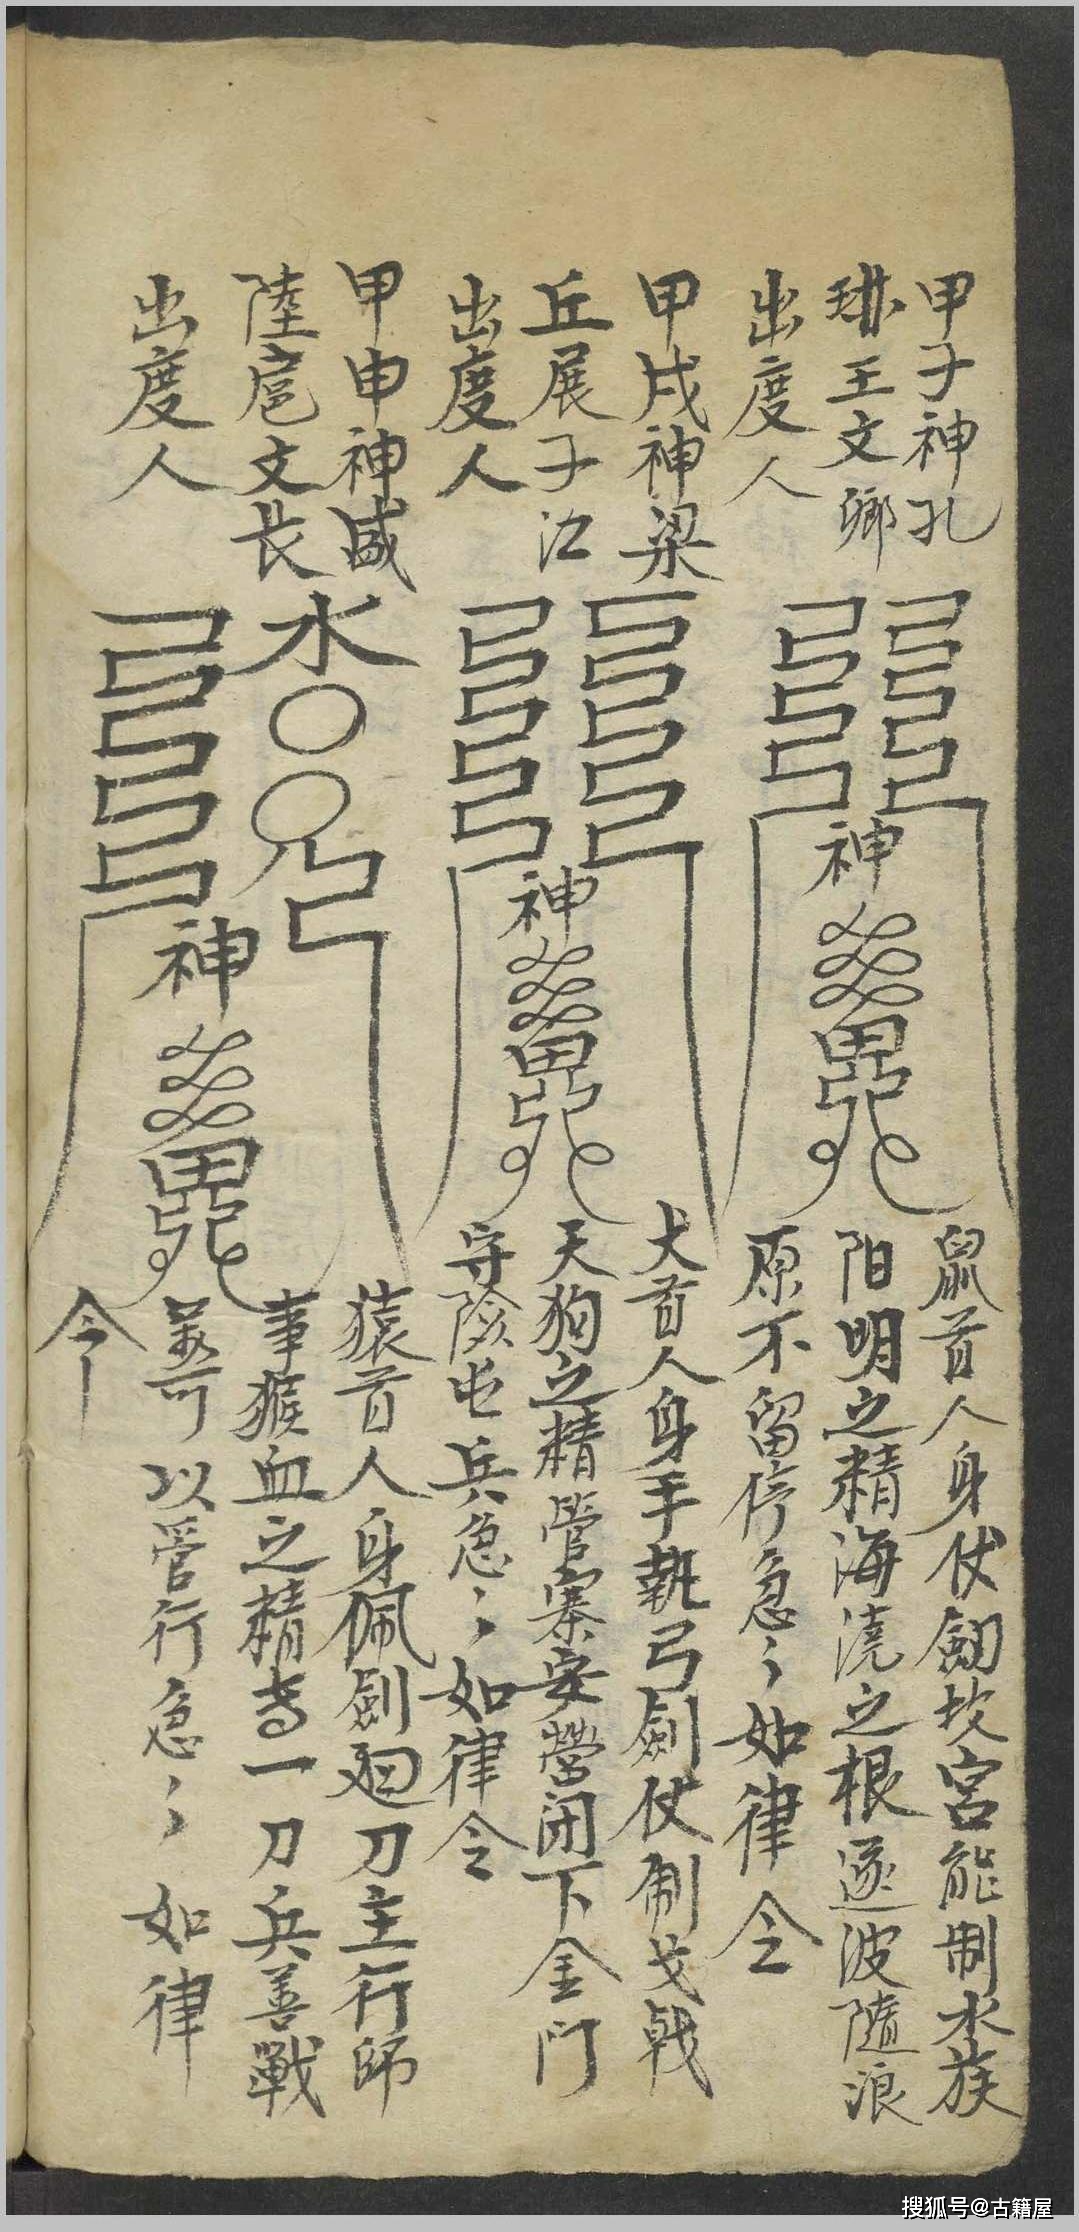 甲子神孔
琳王文卿
出度人
神
鼠首人身仗劔坎宮能制水族
阳明之精海澆之根逐波隨浪
原不留停急〻如律令
甲戌神梁
丘展子江
出度人
神
犬首人身手執弓劍仗制戈戟
天狗之精管寨安營闭下金门
守險屯兵急〻如律令
甲申神威
陸扈文長
出度人
水
神
猿首人身佩劍廻刀主行师
事猴血之精一刀兵善戰
可以管行急〻如律
令
搜狐号@古籍屋